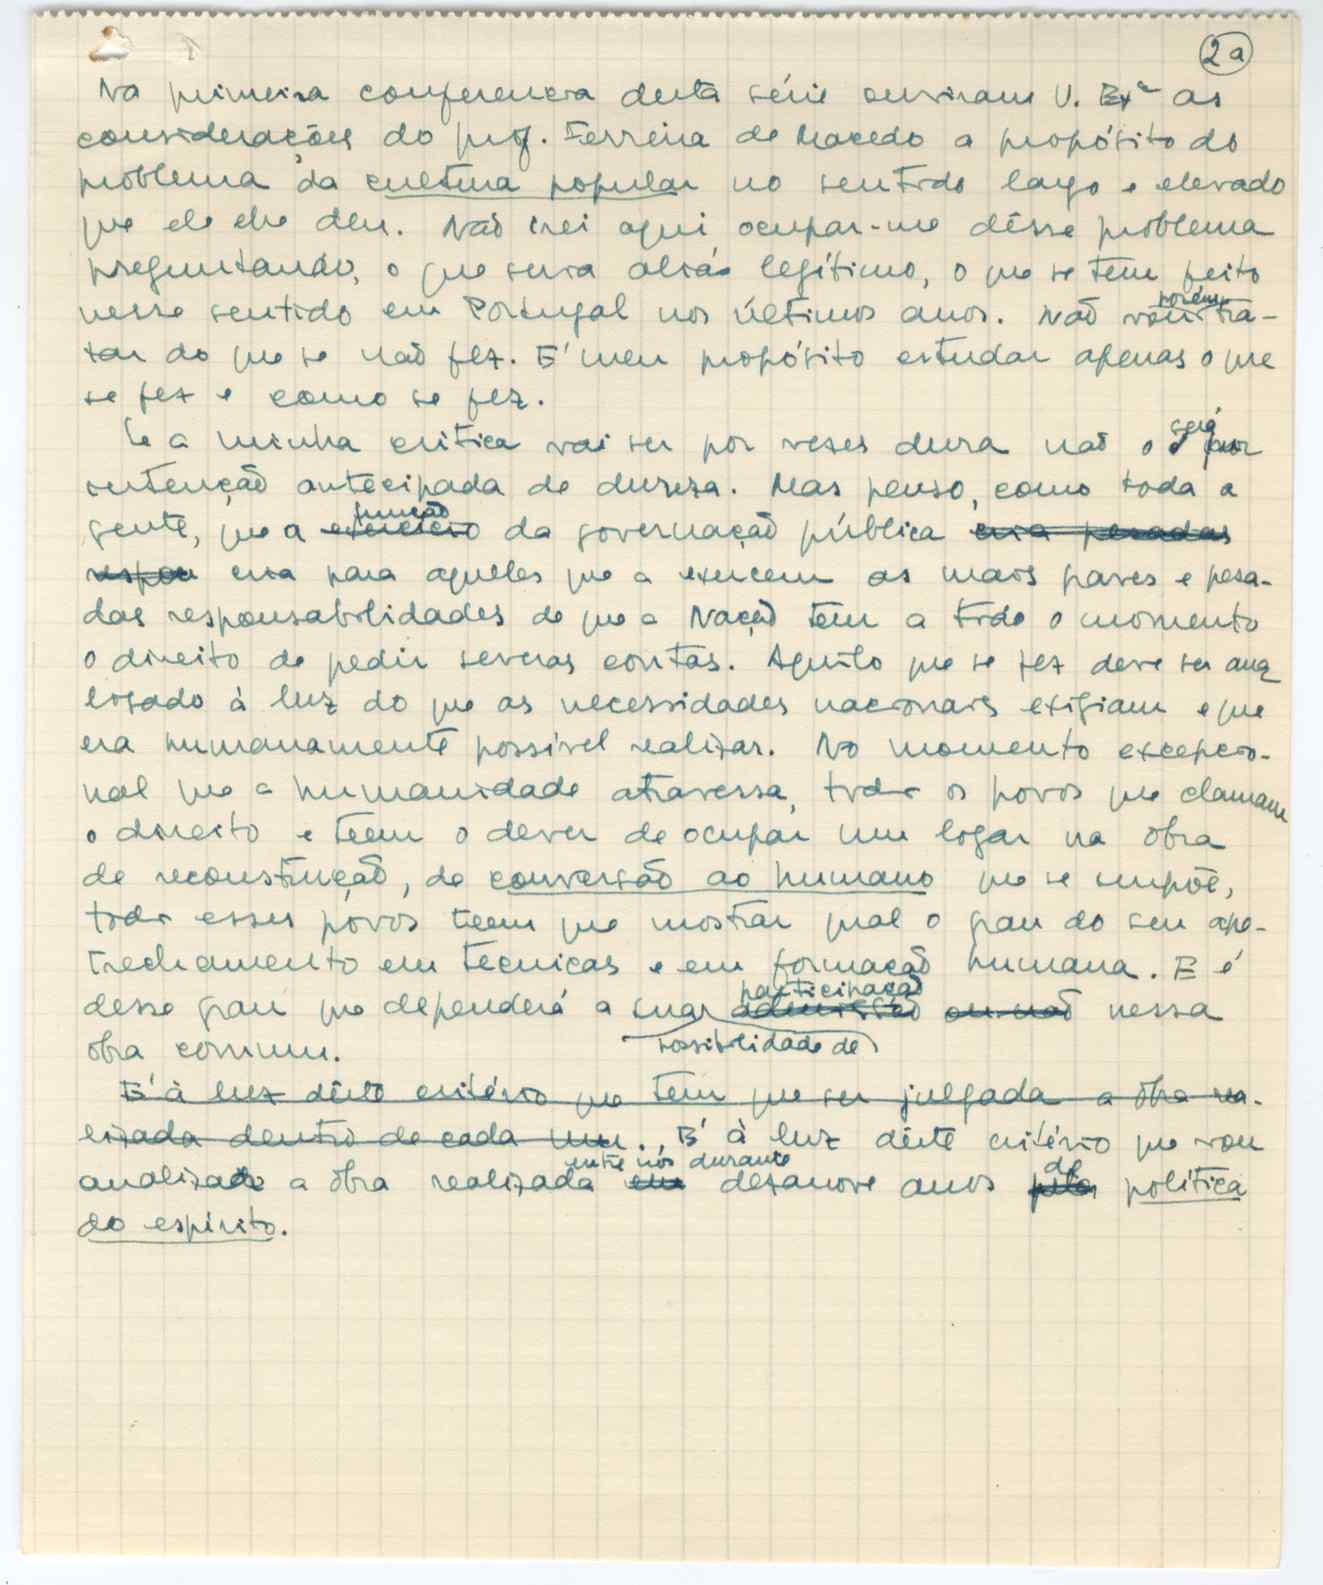 2a
Na primeira conferencia desta série ouviram V. Exª as
considerações do prof. Ferreira de Macedo a propósito do
problema da cultura popular no sentido largo e elevado
que ele lhe deu. Não irei aqui ocupar-me dêsse problema
preguntando, o que seria aliás legítimo, o que se tem feito
nesse sentido em Portugal nos últimos anos. Não vou porém tra-
tar do que se não fez. E' meu propósito estudar apenas o que
se fez e como se fez.
Se a minha critica vai ser por vezes dura não o será por
intenção antecipada de dureza. Mas penso, como toda a
gente, que a exercicio função da governação pública cria pesadas
respon cria para aqueles que a exercem as mais graves e pesa-
das responsabilidades de que a Nação tem a todo o momento
o direito de pedir severas contas. Aquilo que se fez deve ser ana
lisado à luz do que as necessidades nacionais exigiam e que
era humanamente possível realizar. No momento excepcio-
nal que a humanidade atravessa, todos os povos que clamam
o direito e teem o dever de ocupar um logar na obra
de reconstrução, de conversão ao humano que se impõe,
todos esses povos teem que mostrar qual o grau do seu ape-
trechamento em tecnicas e em formação humana. E é
desse grau que dependerá a sua admissão participação ou não nessa
possibilidade de
obra comum.
E' à luz dêste critério que tem que ser julgada a obra rea-
lizada dentro de cada um. E' à luz dêste critério que vou
analizar a obra realizada em entre nós durante dezanove anos pela de política
do espírito.